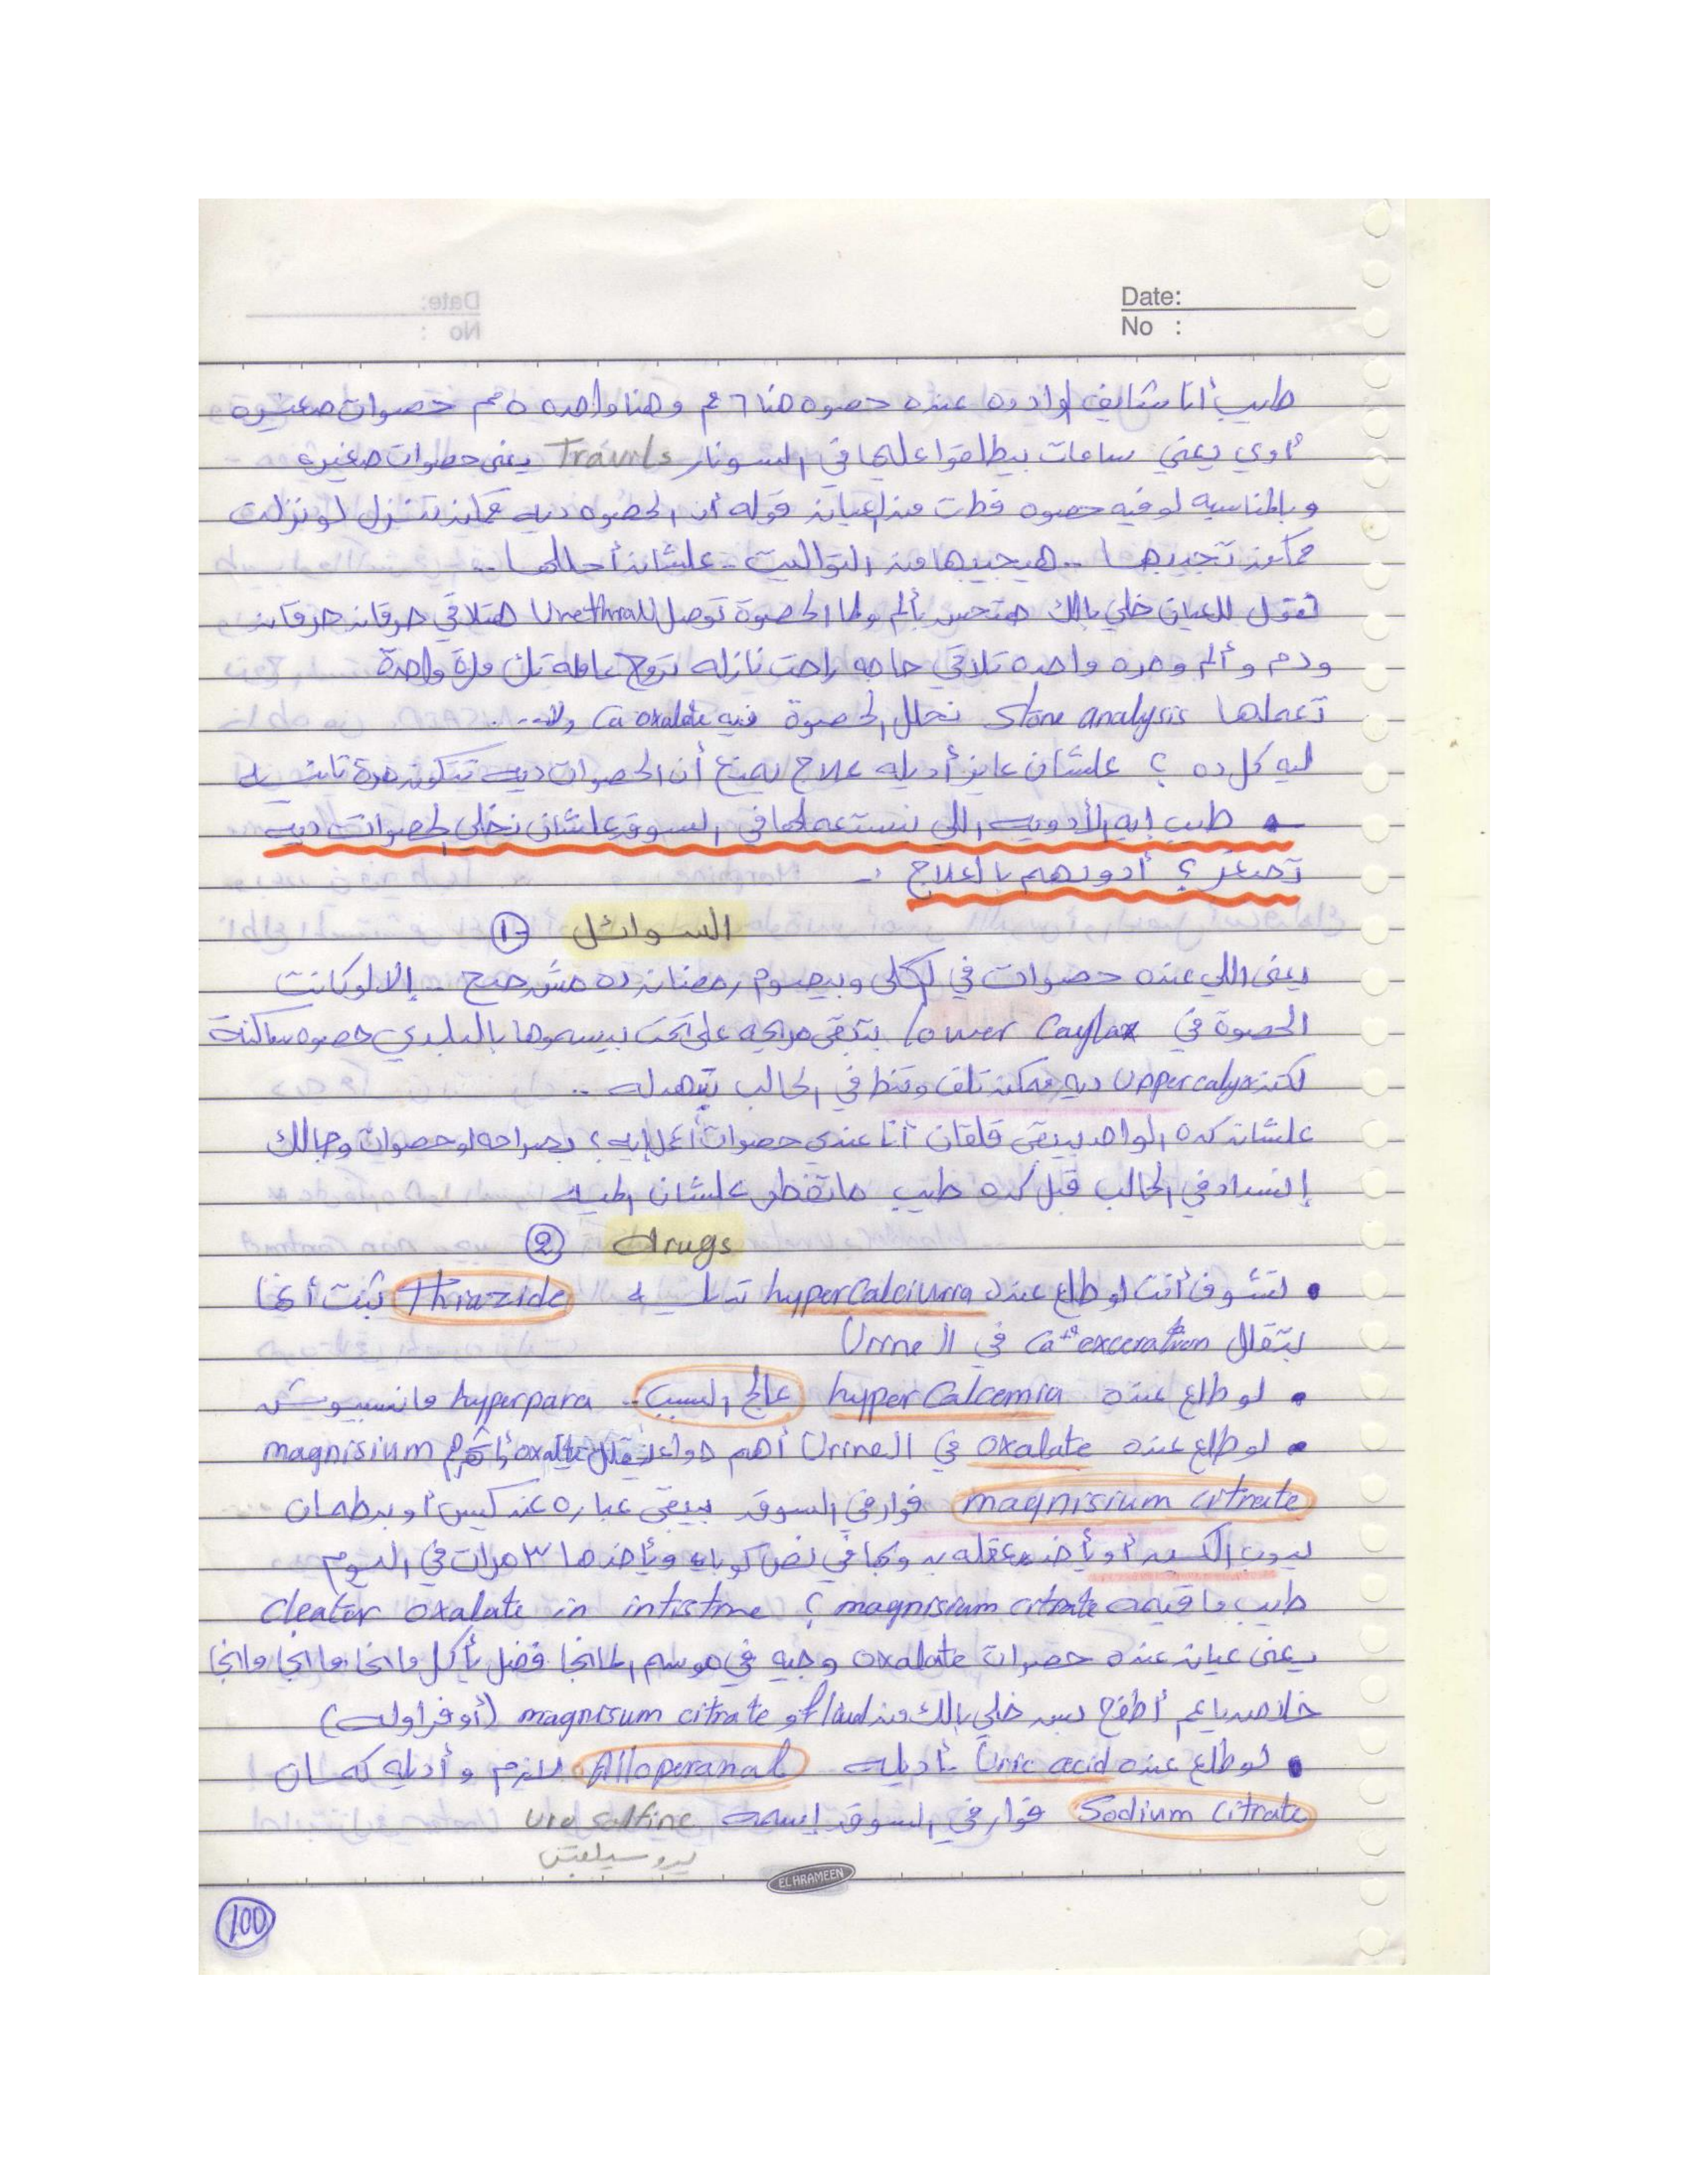 Date:
No :
طيب أنا شايف لواد ده عنده حصوه هنا ٦ مم وهنا واحده ٥ مم حصوات صغيره
أوي يعني ساعات بيطلقوا عليها في السونار Travils يعني حصوات صغيره
وبالمناسبه لو فيه حصوه فطت من العيان قوله أن الحصوه ديه ممكن تنزل لو نزلت
ممكن تجيبها .. هيجيبها من التواليت - علشان أحللها ..
تقول للعيان خلي بالك هتحس بألم ولما الحصوة توصل لل Urethra هتلاقي حرقان حرقان
ودم وألم ومره واحده تلاقي حاجه راحت نازله تروح عامله تك مرة واحدة
تعملها Stone analysis نحلل الحصوة فيه Ca oxalate ولا ...
ليه كل ده ؟ علشان عايز أديله علاج يمنع أن الحصوات ديه تتكون مرة تانيه
طيب إيه الأدويه اللي بنستعملها في السوق علشان نخلي الحصوات ديه
تصغر ؟ أدورهم بالعلاج :-
① السوائل
يعني اللي عنده حصوات في الكلى وبيصوم رمضان ده مش صح - إلا لو كانت
الحصوة في lower Caylax بتبقى مرايحه على تحت بيسموها بالبلدي حصوه ساكنة
لكن Upper calyx ديه ممكن تلف وتنط في الحالب تبهدله ..
علشان كده الواحد بيبقى قلقان أنا عندي حصوات أعمل إيه ؟ بصراحه لو حصوات وجالك
إنسداد في الحالب قبل كده طيب ماتفطر علشان الميه
② drugs
• بتشوف أنت لو طلع عنده hyperCalciuria تديله Thiazide ثبت أنها
بتقلل Ca⁺⁺ exceration في ال Urine
• لو طلع عنده hyperCalcemia عالج السبب .. hyperpara مانسيبوش
• لو طلع عنده oxalate في ال Urine أهم دواء يقلل oxalate magnisium
magnisium citrate فوار في السوق بيبقى عباره عن كيس أو برطمان
يدوب الكيس أو يأخد معلقه يدوبها في نص كوبايه ويأخدها ٣ مرات في اليوم
طيب ما قيمة magnisium citrate ؟ cleator oxalate in intistine
يعني عيان عنده حصوات oxalate وجيه في موسم المانجا فضل يأكل مانجا مانجا مانجا
خلاص ياعم أطفح بس خلي بالك من fluid أو magnisum citrate (أو فراوله)
• لو طلع عنده Uric acid بأديله Alloperanal للازم وأديله كمان
Sodium citrate فوار في السوق إسمه uro salfine
يروسيلفين
EL HRAMEEN
100